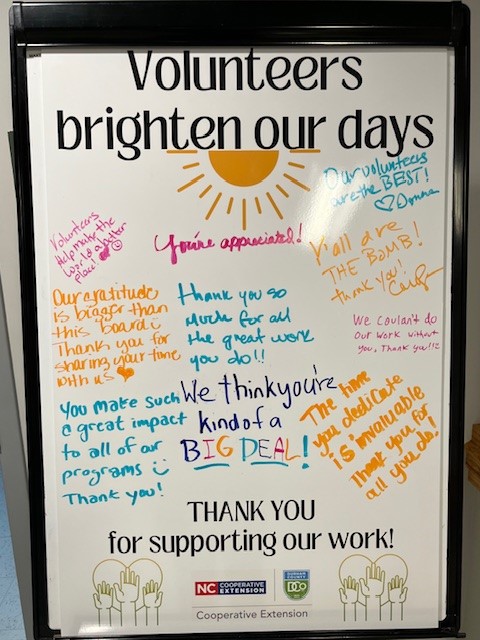 Volunteers
brighten our days
Our volunteers
are the BEST!
♡ Donna
Volunteers
Help make the
World a better
place!
You're appreciated!
Y'all are
THE BOMB!
thank you!
Our gratitude
is bigger than
this board
Thank you for
sharing your time
with us
thank you so
much for all
the great work
you do!!
We couldn't do
our work without
you, Thank you!!!
You make such
a great impact
to all of our
programs
Thank you!
We think you're
kind of a
BIG DEAL!
The time
you dedicate
is invaluable
Thank you for
all you do!
THANK YOU
for supporting our work!
NC COOPERATIVE
EXTENSION
DURHAM
COUNTY
DCO
Cooperative Extension